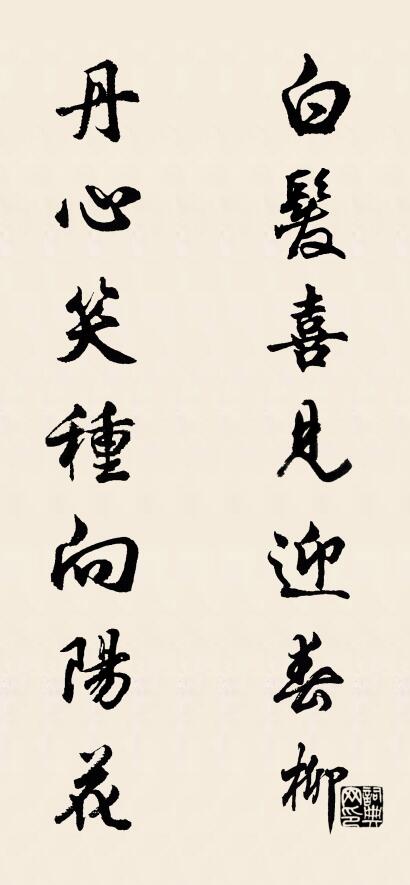 白髮喜見迎春柳
丹心笑種向陽花
詞典網印